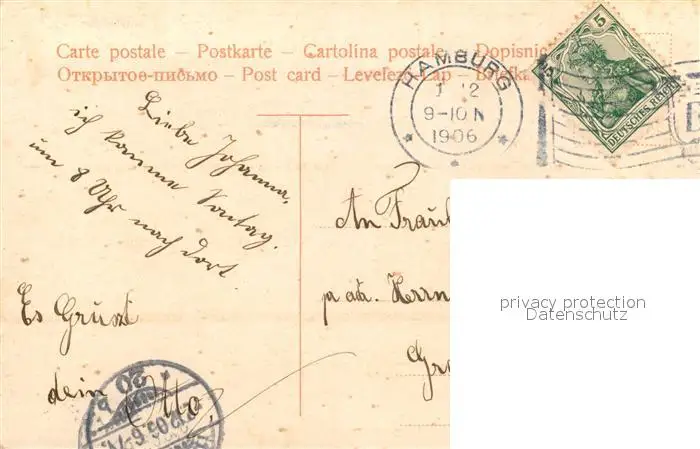 Carte postale – Postkarte – Cartolina postale – Dopisnic
Открытое-письмо – Post card – Levelező-Lap – Briefka
HAMBURG
1 12
9-10 N
1906
5
DEUTSCHES REICH
Liebe Johanna,
ich komme Sontag.
um 8 Uhr nach dort.
Es Grüszt
dein Otto,
An Fräul
pr adr. Herrn
Gr
privacy protection
Datenschutz